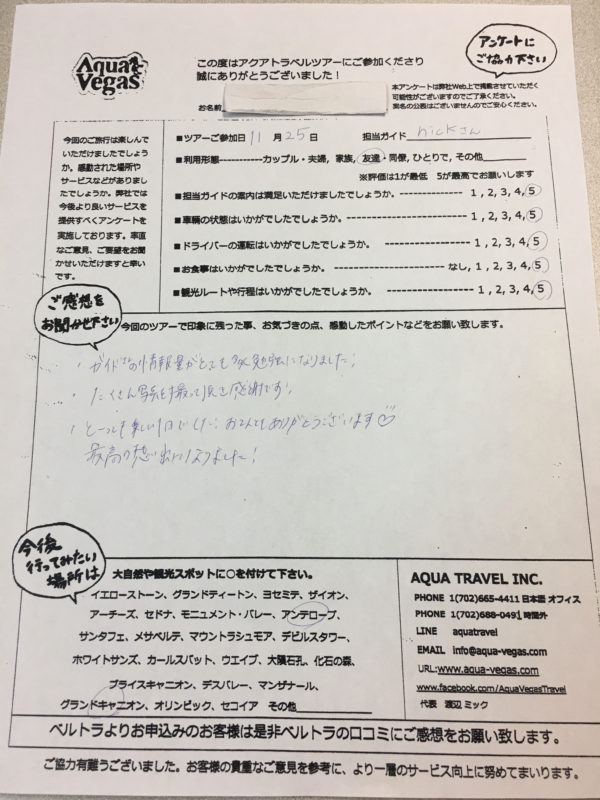 Aqua
Vegas
この度はアクアトラベルツアーにご参加くださり
誠にありがとうございました！
アンケートに
ご協力下さい
本アンケートは弊社Web上で掲載させていただく
可能性がございますのでご了承ください。
実名の公表はございませんのでご安心ください。
お名前
今回のご旅行は楽しんで
いただけましたでしょう
か。感動された場所や
サービスなどがありまし
たでしょうか。弊社では
今後より良いサービスを
提供すべくアンケートを
実施しております。率直
なご意見、ご要望をお聞
かせいただけますと幸い
です。
■ツアーご参加日 11 月 25 日 担当ガイド nickさん
■利用形態-----------カップル・夫婦, 家族, 友達・同僚, ひとりで, その他
※評価は1が最低 5が最高でお願いします
■担当ガイドの案内は満足いただけましたでしょうか。------------ 1 , 2, 3, 4, 5
■車輌の状態はいかがでしたでしょうか。------------------------ 1 , 2, 3, 4, 5
■ドライバーの運転はいかがでしたでしょうか。 ------------------ 1 , 2, 3, 4, 5
■お食事はいかがでしたでしょうか。 ------------------------ なし, 1 , 2, 3, 4, 5
■観光ルートや行程はいかがでしたでしょうか。 ------------------ 1 , 2, 3, 4, 5
ご感想を
お聞かせ下さい
今回のツアーで印象に残った事、お気づきの点、感動したポイントなどをお願い致します。
・ガイドさんの情報量がとても多く勉強になりました！
・たくさん写真を撮って頂き感謝です！
・とーっても楽しい1日でした。おふたりともありがとうございます♡
最高の思い出になりました！
今後
行ってみたい
場所は
大自然や観光スポットに○を付けて下さい。
イエローストーン、グランドティートン、ヨセミテ、ザイオン、
アーチーズ、セドナ、モニュメント・バレー、アンテロープ、
サンタフェ、メサベルテ、マウントラシュモア、デビルスタワー、
ホワイトサンズ、カールスバット、ウエイブ、大隕石孔、化石の森、
ブライスキャニオン、デスバレー、マンザナール、
グランドキャニオン、オリンピック、セコイア その他
AQUA TRAVEL INC.
PHONE 1(702)665-4411 日本語 オフィス
PHONE 1(702)688-0491 時間外
LINE aquatravel
EMAIL info@aqua-vegas.com
URL:www.aqua-vegas.com
www.facebook.com/AquaVegasTravel
代表 渡辺 ミック
ベルトラよりお申込みのお客様は是非ベルトラの口コミにご感想をお願い致します。
ご協力有難うございました。お客様の貴重なご意見を参考に、より一層のサービス向上に努めてまいります。